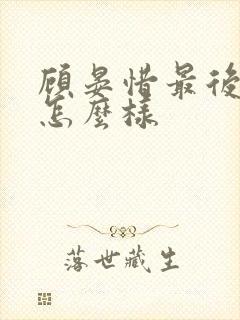 顾晏惜最後
怎麼樣
落世藏生